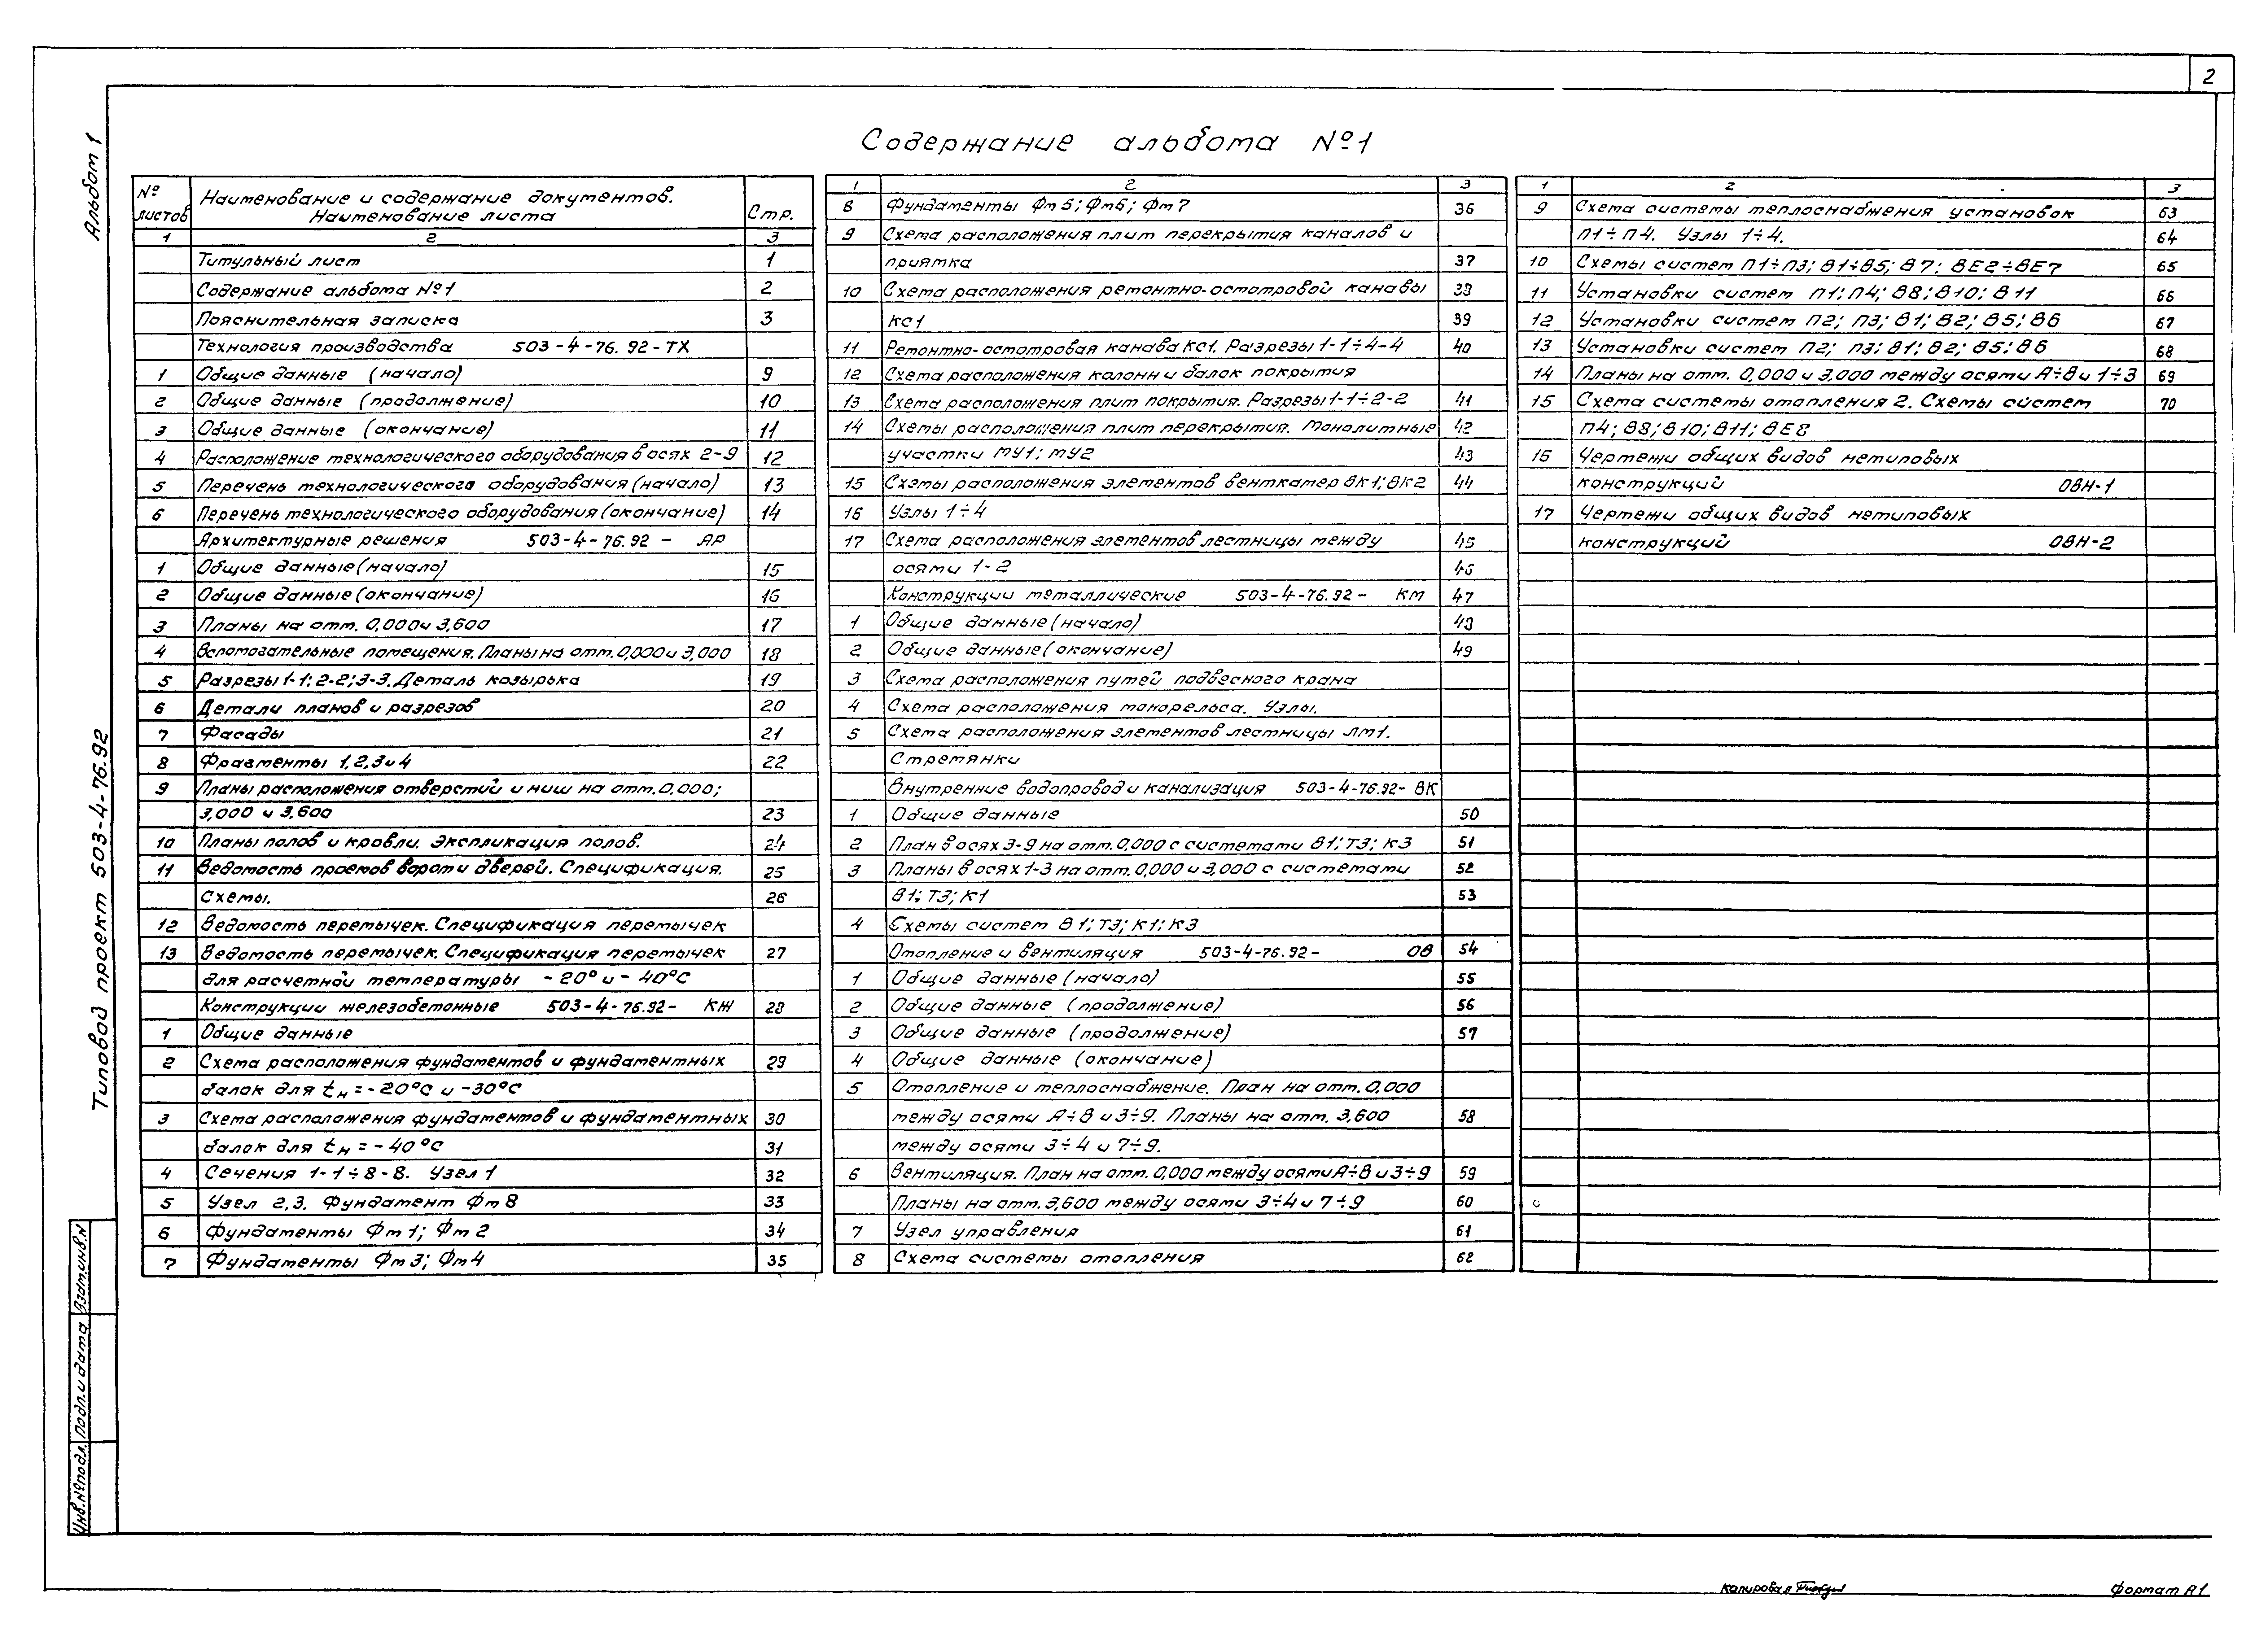 2
Альбом 1
Типовой проект 503-4-76.92
Содержание альбома №1
№ листов | Наименование и содержание документов. Наименование листа | Стр.
1 | 2 | 3
Титульный лист | 1
Содержание альбома №1 | 2
Пояснительная записка | 3
Технология производства 503-4-76.92-ТХ
1 | Общие данные (начало) | 9
2 | Общие данные (продолжение) | 10
3 | Общие данные (окончание) | 11
4 | Расположение технологического оборудования в осях 2-9 | 12
5 | Перечень технологического оборудования (начало) | 13
6 | Перечень технологического оборудования (окончание) | 14
Архитектурные решения 503-4-76.92 - АР
1 | Общие данные (начало) | 15
2 | Общие данные (окончание) | 16
3 | Планы на отм. 0,000 и 3,600 | 17
4 | Вспомогательные помещения. Планы на отм. 0,000 и 3,000 | 18
5 | Разрезы 1-1; 2-2; 3-3. Деталь козырька | 19
6 | Детали планов и разрезов | 20
7 | Фасады | 21
8 | Фрагменты 1,2,3 и 4 | 22
9 | Планы расположения отверстий и ниш на отм. 0,000;
3,000 и 3,600 | 23
10 | Планы полов и кровли. Экспликация полов. | 24
11 | Ведомость проемов ворот и дверей. Спецификация. | 25
Схемы. | 26
12 | Ведомость перемычек. Спецификация перемычек
13 | Ведомость перемычек. Спецификация перемычек | 27
для расчетной температуры -20° и -40°С
Конструкции железобетонные 503-4-76.92- КЖ | 28
1 | Общие данные
2 | Схема расположения фундаментов и фундаментных | 29
балок для tн = -20°С и -30°С
3 | Схема расположения фундаментов и фундаментных | 30
балок для tн = -40°С | 31
4 | Сечения 1-1÷8-8. Узел 1 | 32
5 | Узел 2,3. Фундамент Фм8 | 33
6 | Фундаменты Фм1; Фм2 | 34
7 | Фундаменты Фм3; Фм4 | 35
1 | 2 | 3
8 | Фундаменты Фм5; Фм6; Фм7 | 36
9 | Схема расположения плит перекрытия каналов и
приямка | 37
10 | Схема расположения ремонтно-осмотровой канавы | 38
КС1 | 39
11 | Ремонтно-осмотровая канава КС1. Разрезы 1-1÷4-4 | 40
12 | Схема расположения колонн и балок покрытия
13 | Схема расположения плит покрытия. Разрезы 1-1÷2-2 | 41
14 | Схемы расположения плит перекрытия. Монолитные | 42
участки МУ1; МУ2 | 43
15 | Схемы расположения элементов венткамер ВК1; ВК2 | 44
16 | Узлы 1÷4
17 | Схема расположения элементов лестницы между | 45
осями 1-2 | 46
Конструкции металлические 503-4-76.92- КМ | 47
1 | Общие данные (начало) | 48
2 | Общие данные (окончание) | 49
3 | Схема расположения путей подвесного крана
4 | Схема расположения монорельса. Узлы.
5 | Схема расположения элементов лестницы ЛМ1.
Стремянки
Внутренние водопровод и канализация 503-4-76.92- ВК
1 | Общие данные | 50
2 | План в осях 3-9 на отм. 0,000 с системами В1; Т3; К3 | 51
3 | Планы в осях 1-3 на отм. 0,000 и 3,000 с системами | 52
В1; Т3; К1 | 53
4 | Схемы систем В1; Т3; К1; К3
Отопление и вентиляция 503-4-76.92- ОВ | 54
1 | Общие данные (начало) | 55
2 | Общие данные (продолжение) | 56
3 | Общие данные (продолжение) | 57
4 | Общие данные (окончание)
5 | Отопление и теплоснабжение. План на отм. 0,000
между осями А÷В и 3÷9. Планы на отм. 3,600 | 58
между осями 3÷4 и 7÷9.
6 | Вентиляция. План на отм. 0,000 между осями А÷В и 3÷9 | 59
Планы на отм. 3,600 между осями 3÷4 и 7÷9 | 60
7 | Узел управления | 61
8 | Схема системы отопления | 62
1 | 2 | 3
9 | Схема системы теплоснабжения установок | 63
П1÷П4. Узлы 1÷4. | 64
10 | Схемы систем П1÷П3; В1÷В5; В7; ВЕ2÷ВЕ7 | 65
11 | Установки систем П1; П4; В8; В10; В11 | 66
12 | Установки систем П2; П3; В1; В2; В5; В6 | 67
13 | Установки систем П2; П3; В1; В2; В5; В6 | 68
14 | Планы на отм. 0,000 и 3,000 между осями А÷В и 1÷3 | 69
15 | Схема системы отопления 2. Схемы систем | 70
П4; В8; В10; В11; ВЕ8
16 | Чертежи общих видов нетиповых
конструкций ОВН-1
17 | Чертежи общих видов нетиповых
конструкций ОВН-2
Инв.№подл. Подп. и дата Взам.инв.N
Копировал
Формат А1